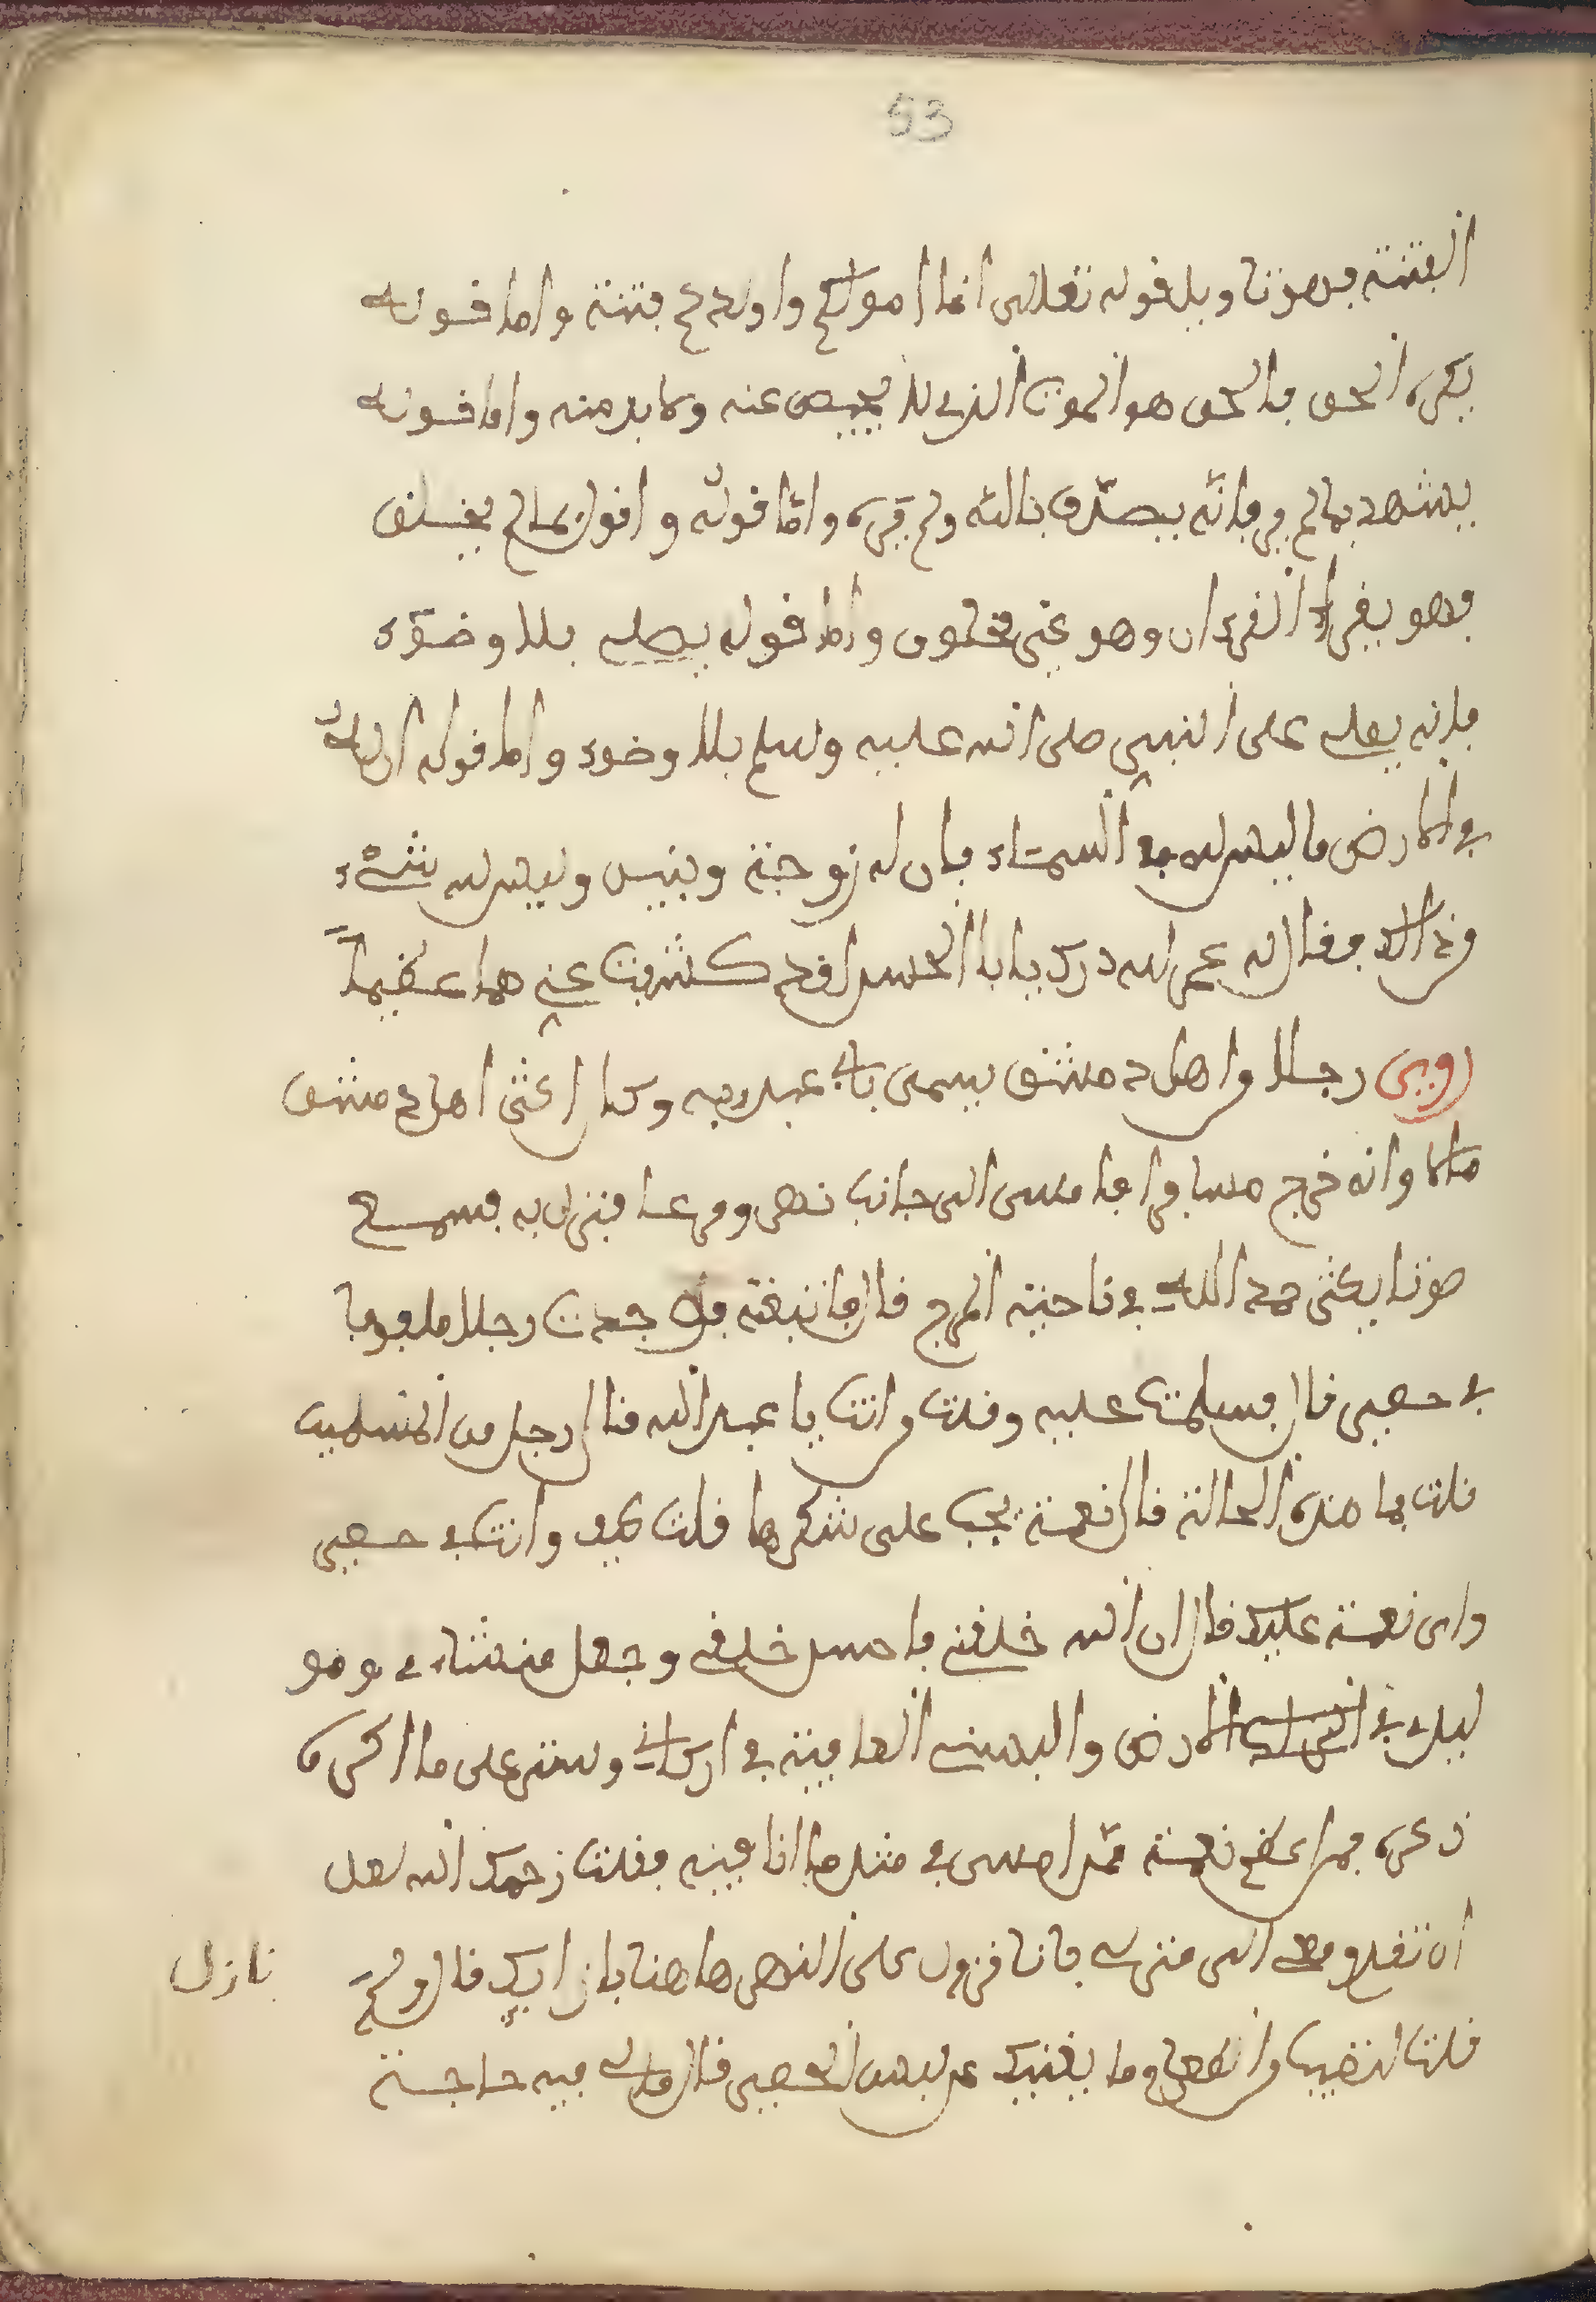 53
الفتنة فهو تاويل قوله تعالى انما اموالكم واولدكم فتنة واما قوله
يكره الحق فالحق هو الموت الذى لا محيص عنه ولا بد منه واما قوله
يشهد بما لم ير فانّه يصدّق بالله ولم يره وامّا قوله واقول بما لم يخلق
فهو يقرا القرءان وهو غير مخلوق واما قوله يصلي بلا وضوّء
فانه يصلي على النبي صلى الله عليه وسلم بلا وضوء واما قوله ان له
في الارض ما ليس لله في السماء فان له زوجة وبنين وليس لله شيء
من ذالك فقال له عمر لله درك يا ابا الحسن لقد كشفت عني هما عظيماً
روى رجلا من اهل دمشق يسمى بابي عبد ربه وكان اكثر اهل دمشق
مالا وانه خرج مسافرا فامسى الى جانب نهر ومرعا فنزل به فسمع
صوتا يكثر حمد الله في ناحية المرج قال فاتبعته فوجدت رجلا ملفوفا
في حصير قال فسلمت عليه وقلت من انت يا عبد الله قال رجل من المسلمين
قلت فما هذه الحالة قال نعمة يجب على شكرها قلت كيف وانت في حصير
واى نعمة عليك قال ان الله خلقني فاحسن خلقي وجعل منشاءي ومو
ليدي في الارض والبسني العافية في اركاني وستر على ما اكره
ذكره فمن اعظم نعمة ممّن امسى في مثل ما انا فيه فقلت رحمك الله لعل
ان تقوم معي الى منزلي فانا نزول على النهر هاهنا بازايك قال ولم
نازل
قلت لتصيب من الطعام وما يغنيك عن لبس الحصير قال مالي فيه حاجة